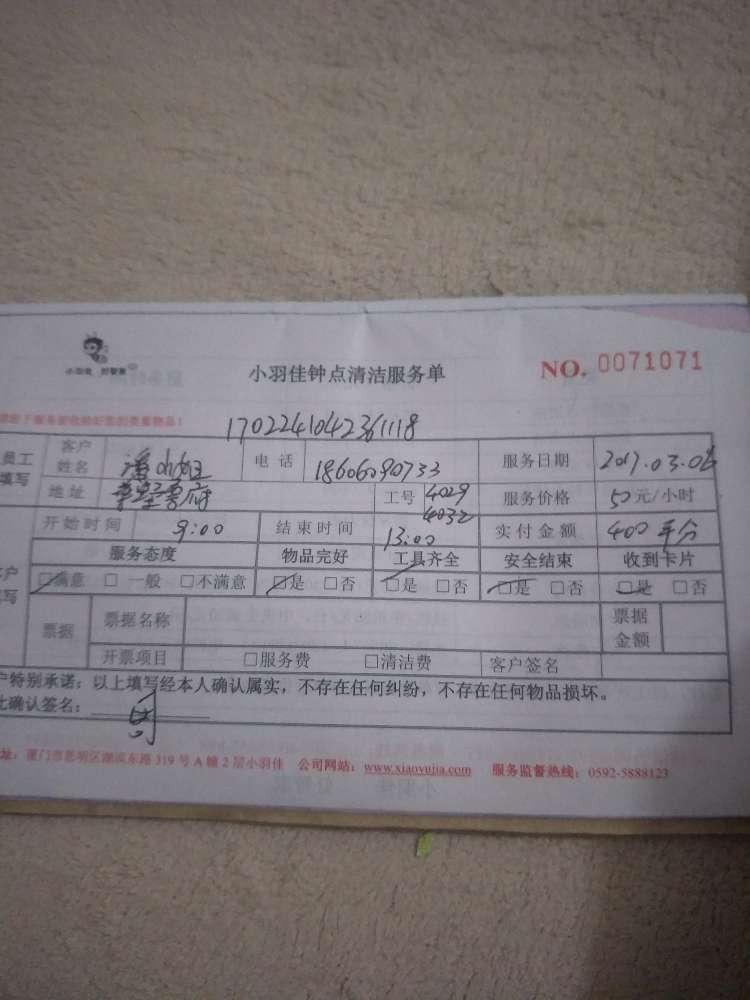 小羽佳 好管家
小羽佳钟点清洁服务单
NO. 0071071
1702241042361118
员工填写 客户姓名 潘小姐 电话 18606090733 服务日期 2017.03.06
地址 工号 4029 4032 服务价格 50元/小时
开始时间 9:00 结束时间 13:00 实付金额 400 平分
服务态度 物品完好 工具齐全 安全结束 收到卡片
□满意 □一般 □不满意 □是 □否 □是 □否 □是 □否 □是 □否
票据 票据名称 票据金额
开票项目 □服务费 □清洁费 客户签名
户特别承诺：以上填写经本人确认属实，不存在任何纠纷，不存在任何物品损坏。
此确认签名：
址：厦门市思明区湖滨东路319号A幢2层小羽佳 公司网站：www.xiaoyujia.com 服务监督热线：0592-5888123